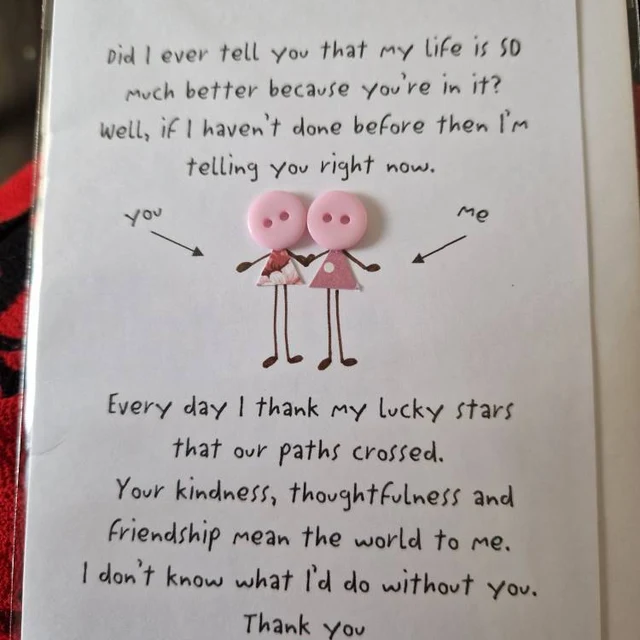 Did I ever tell you that my life is SO
much better because you're in it?
Well, if I haven't done before then I'm
telling you right now.
you
Me
Every day I thank my lucky stars
that our paths crossed.
Your kindness, thoughtfulness and
friendship mean the world to me.
I don't know what I'd do without you.
Thank you